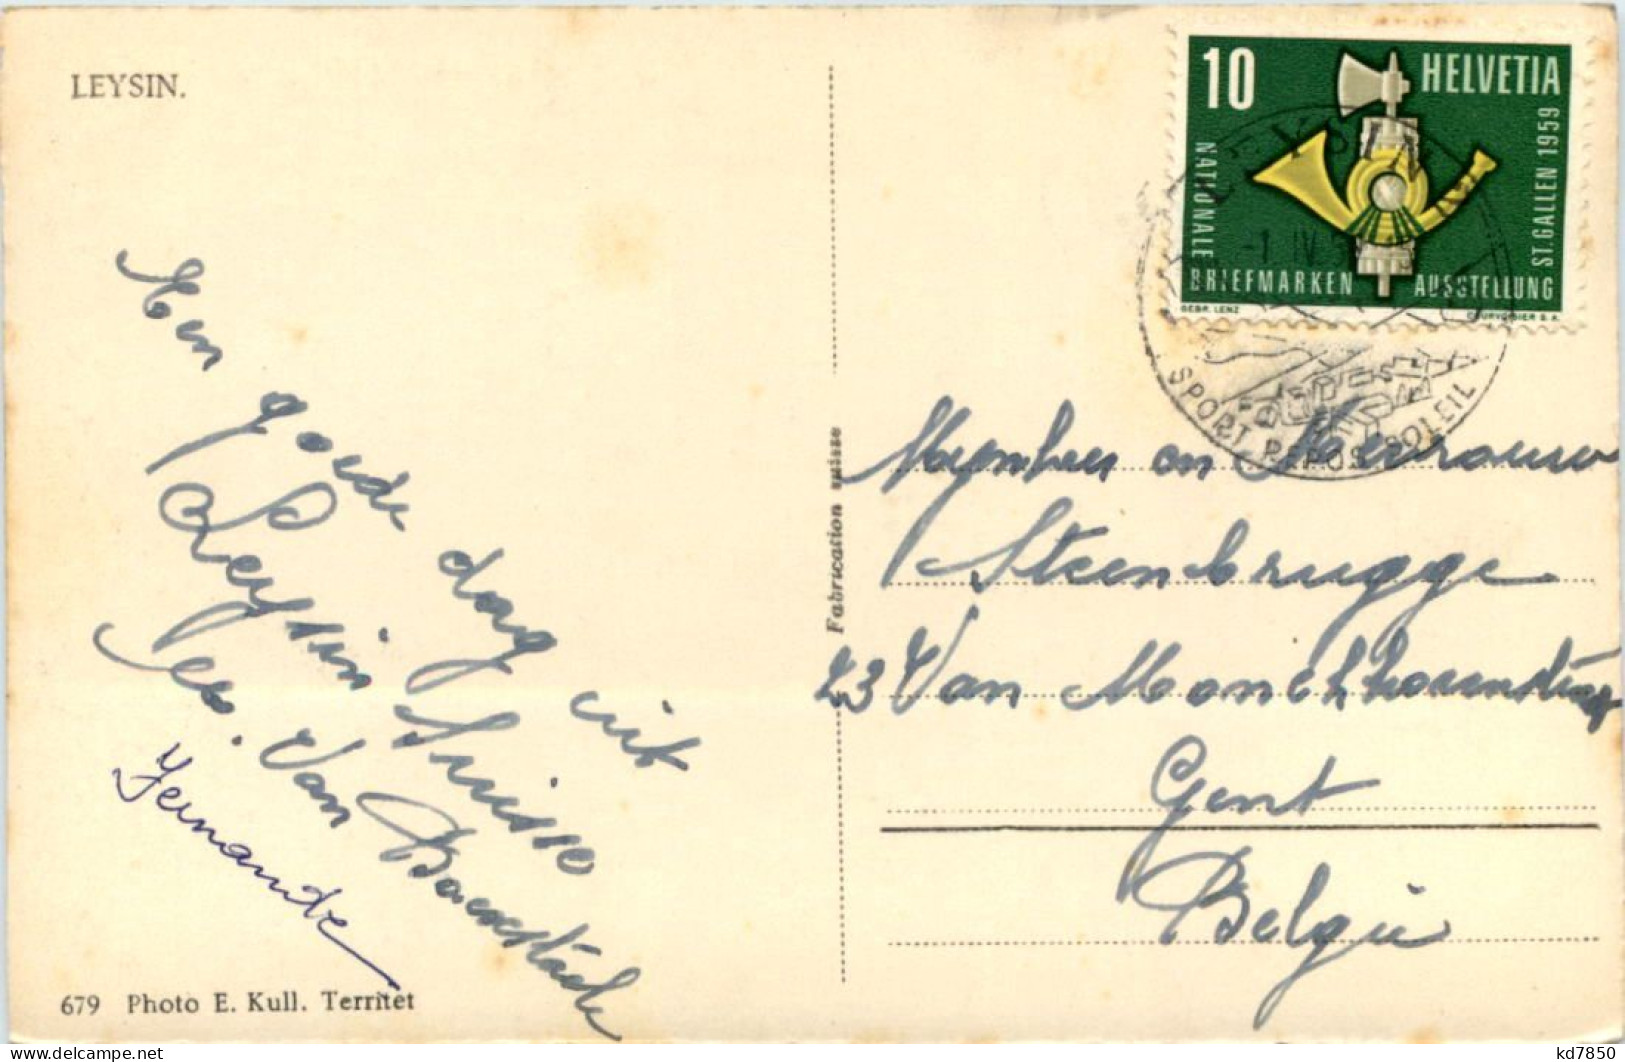 LEYSIN.
10 HELVETIA
NATIONALE
BRIEFMARKEN AUSSTELLUNG
ST.GALLEN 1959
GEBR. LENZ COURVOISIER S.A.
LEYSIN
-1.IV.
SPORT REPOS SOLEIL
Fabrication suisse
Een goede dag uit
Leysin Suisse
Van
Fernande
Mynheer en Mevrouw
Steenbrugge
23 Van
Gent
Belgie
679 Photo E. Kull. Territet
kd7850